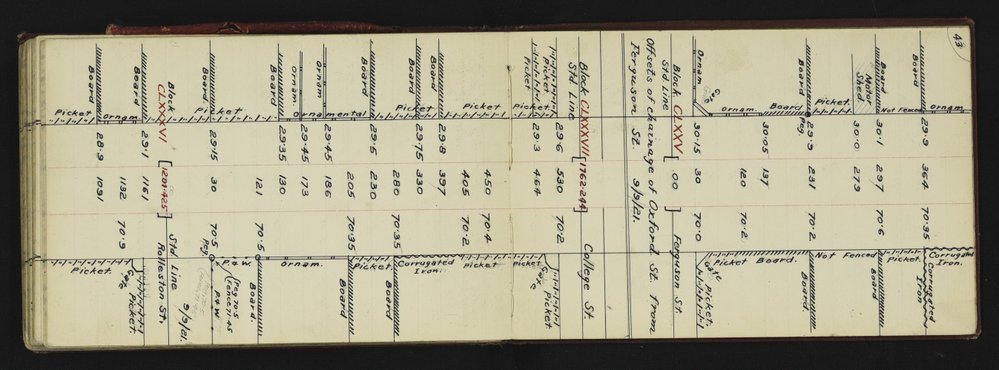 43
Ornam
Board 29.9 364 70.35 Corrugated Iron.
Not Fenced
Board 30.1 297 70.6 Picket. Board Corrugated Iron
Motor Shed 30.0 279
Picket. Not Fenced
Board Peg 29.9 231 70.2 Board.
Board 30.05 137 Board.
Ornam. 120 70.2 Picket
Gate
Ornam 30.15 30 70.0 Gate Picket.
Block CLXXV [ 00 Ferguson St.
Std Line
Offsets of chainage of Oxford St. from
Ferguson St. 9/9/21.
Block CLXXXVII [1762.244] College St
Std Line
Picket 29.6 530 70.2 Picket
Picket 29.3 464 Gate
Picket. Picket
Picket 450 70.4 Picket
405 70.2
Board 29.8 397 Corrugated Iron.
Picket
Board 29.75 330
280 70.35 Board
Board 29.5 230 Picket.
205 70.35 Board
Ornamental
Ornam 29.45 186
Ornam 29.45 173 Ornam.
Board 29.35 130
121 70.5 Board.
P & W.
Picket
Board 29.15 30 70.5 Peg. P & W
Peg 70.5
Fence 71.45
Block CLXXXVI [1201.425] Std Line
Rolleston St. 9/9/21.
Board 29.1 1161 Picket.
Ornam. 1132 70.9 Gate
Picket Picket.
Board 28.9 1091